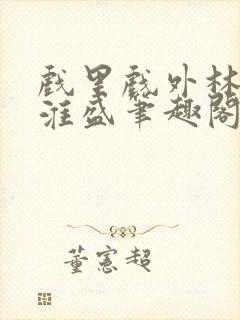 戲里戲外林
淮盛筆趣閣
董憲超